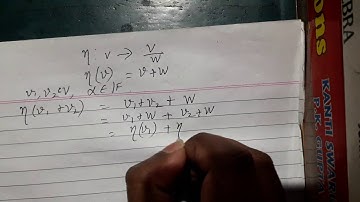 η: v → V/W
η(v) = v+W
v₁, v₂ ∈ V, α ∈ F
η(v₁ + v₂) = v₁+v₂ + W
= v₁+W + v₂+W
= η(v₁) + η
BRA
ons
KANTI SWARU
P.K. GUPTA